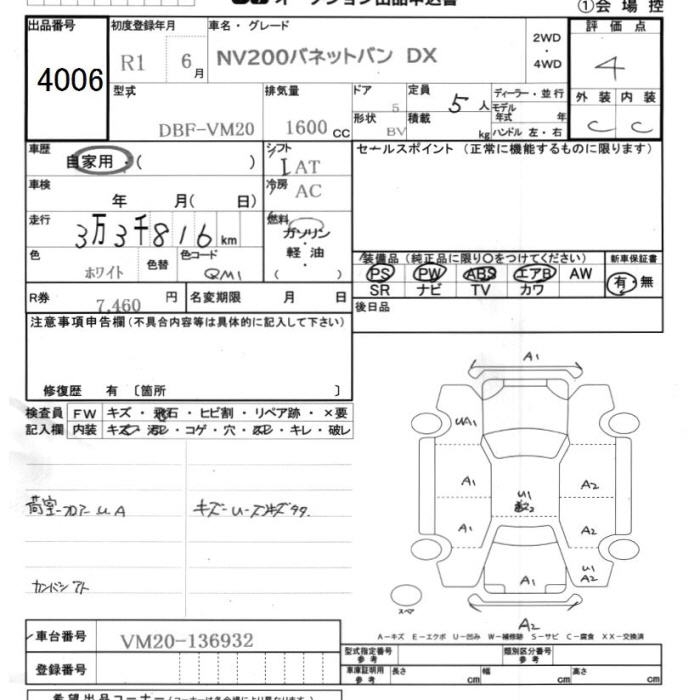 オークション出品申込書
①会場控
出品番号 初度登録年月 車名・グレード 2WD 評価点
4006 R1 6月 NV200バネットバン DX ・4WD 4
型式 排気量 ドア 定員 ディーラー・並行 外装 内装
DBF-VM20 1600cc 5 5人 モデル年式 年 C C
形状 積載
BV kg ハンドル 左・右
車歴 シフト セールスポイント (正常に機能するものに限ります)
自家用・( ) IAT
車検 冷房
年 月( 日) AC
走行 燃料
3万3千816km ガソリン
色 色替 色コード ・軽油 装備品(純正品に限り○をつけてください) 新車保証書
ホワイト QM1 ( ) PS PW ABS エアB AW 有・無
R券 名変期限 月 日 SR ナビ TV カワ
7,460円 後日品
注意事項申告欄(不具合内容等は具体的に記入して下さい)
修復歴 有 〔箇所 〕
検査員 FW キズ・飛石・ヒビ割・リペア跡・×要
記入欄 内装 キズ・汚レ・コゲ・穴・凹・キレ・破レ
A1
UA1
A1 U1 A2
A1 A2
A1 U1
A2
スペア
A2
荷室フロアー UA
カンバン アト
A-キズ E-エクボ U-凹み W-補修跡 S-サビ C-腐食 XX-交換済
車台番号 VM20-136932 型式指定番号 参考 類別区分番号 参考
登録番号 車庫証明用 参考 長さ cm 幅 cm 高さ cm
希望出品コーナー